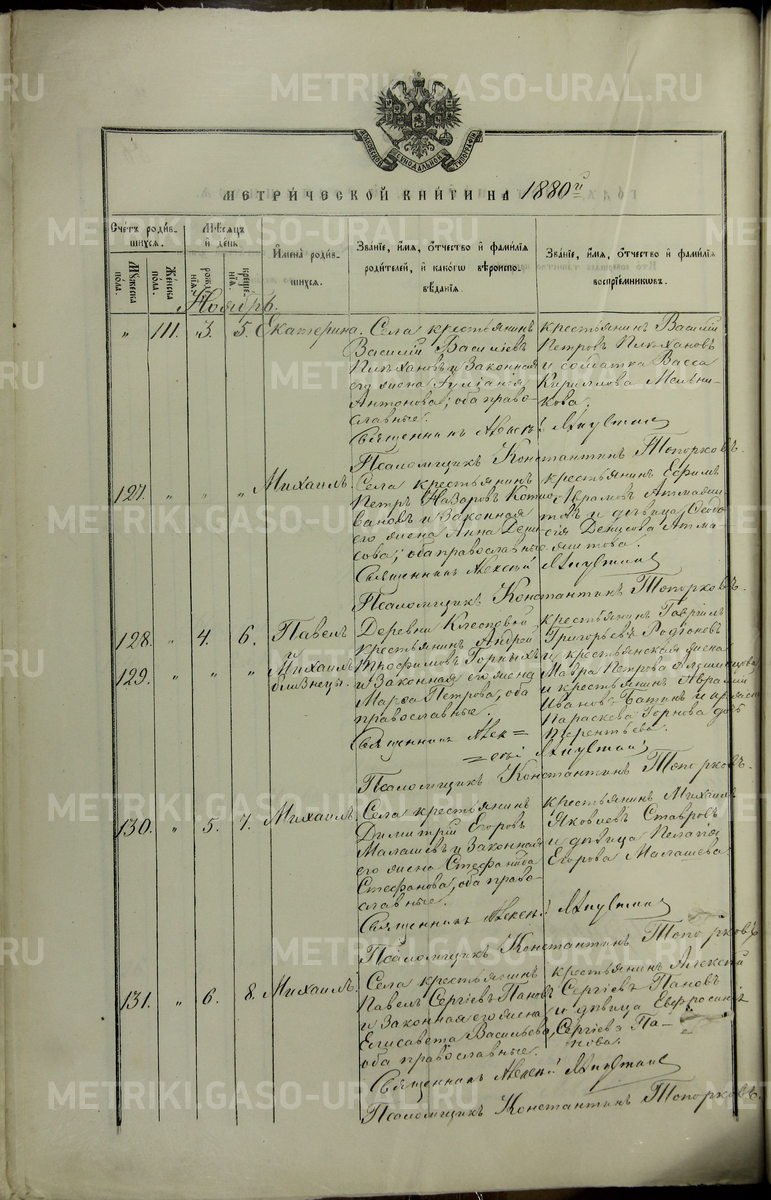 METRIKI.GASO-URAL.RU
МЕТРИЧЕСКОЙ КНИГИ НА 1880й
Счетъ родившихся.
Мѣсяцъ и день
Имена родившихся.
Званіе, имя, отчество и фамилія родителей, и какого вѣроисповѣданія.
Званіе, имя, отчество и фамилія воспріемниковъ.
Мужеска пола.
Женска пола.
рожденія.
крещенія.
Ноябрь.
" 111. 3. 5. Екатерина.
Села крестьянинъ
Василій Василіевъ
Плѣхановъ и законная
его жена
Антонова; оба право-
славные.
крестьянинъ Василій
Петровъ Плѣхановъ
и солдатка Васса
Кириллова Мельни-
кова.
Священникъ Алексѣй
Псаломщикъ Константинъ Топорковъ.
127. " " " Михаилъ.
Села крестьянинъ
Петръ Назаровъ
и законная
его жена Анна Дени-
сова; оба православные
крестьянинъ Ефимъ
Аврамовъ
и дѣвица
Денисова
Священникъ Алексѣй
Псаломщикъ Константинъ Топорковъ.
128. " 4. 6. Павелъ
и
129. " " " Михаилъ
близнецы.
Деревни
крестьянинъ Андрей
Трофимовъ Горныхъ
и законная его жена
Марѳа Петрова; оба
православные.
крестьянинъ Гавріилъ
Григорьевъ
и крестьянская жена
Мавра Петрова
и крестьянинъ Аврамій
Ивановъ
Параскева
Терентьева.
Священникъ Алек=
=сѣй
Псаломщикъ Константинъ Топорковъ.
130. " 5. 7. Михаилъ.
Села крестьянинъ
Димитрій Егоровъ
Малашевъ и законная
его жена Стефанида
Стефанова; оба право-
славные.
крестьянинъ Михаилъ
Яковлевъ Ставровъ
и дѣвица Пелагія
Егорова Малашева.
Священникъ Алексѣй
Псаломщикъ Константинъ Топорковъ.
131. " 6. 8. Михаилъ.
Села крестьянинъ
Павелъ Сергіевъ Пановъ
и законная его жена
Елисавета Васильева,
оба православные.
крестьянинъ Алексѣй
Сергіевъ Пановъ
и дѣвица Евфросинія
Сергіева Па-
нова.
Священникъ Алексѣй
Псаломщикъ Константинъ Топорковъ.